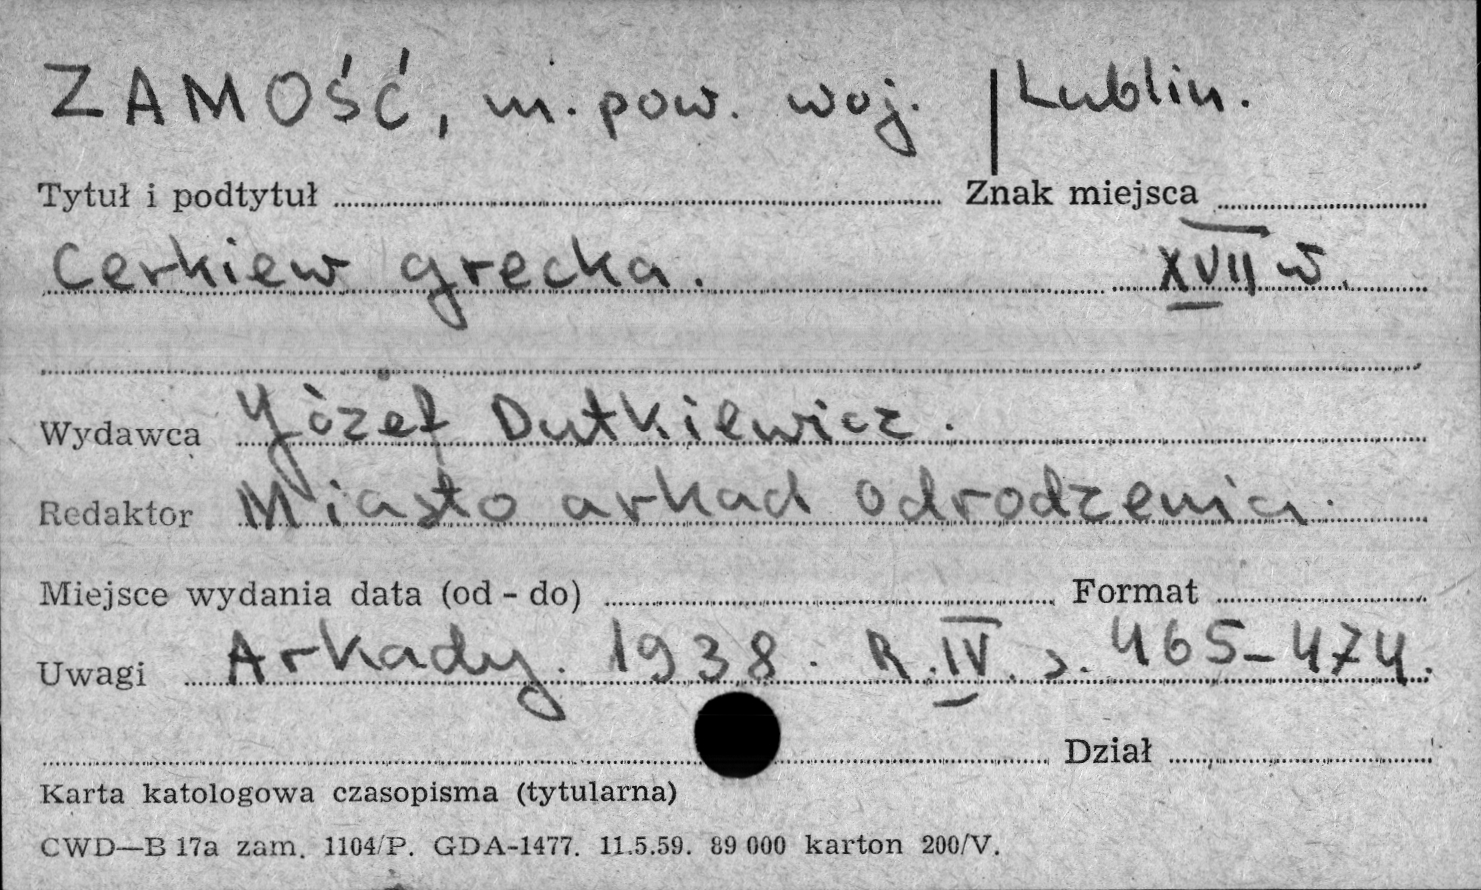 ZAMOŚĆ, m. pow. woj. | Lublin.
Tytuł i podtytuł Znak miejsca
Cerkiew grecka. XVII w.
Wydawca Józef Dutkiewicz.
Redaktor Miasto arkad odrodzenia.
Miejsce wydania data (od - do) Format
Uwagi Arkady. 1938. R. IV. s. 465-474.
Dział
Karta katologowa czasopisma (tytularna)
CWD—B 17a zam. 1104/P. GDA-1477. 11.5.59. 89 000 karton 200/V.